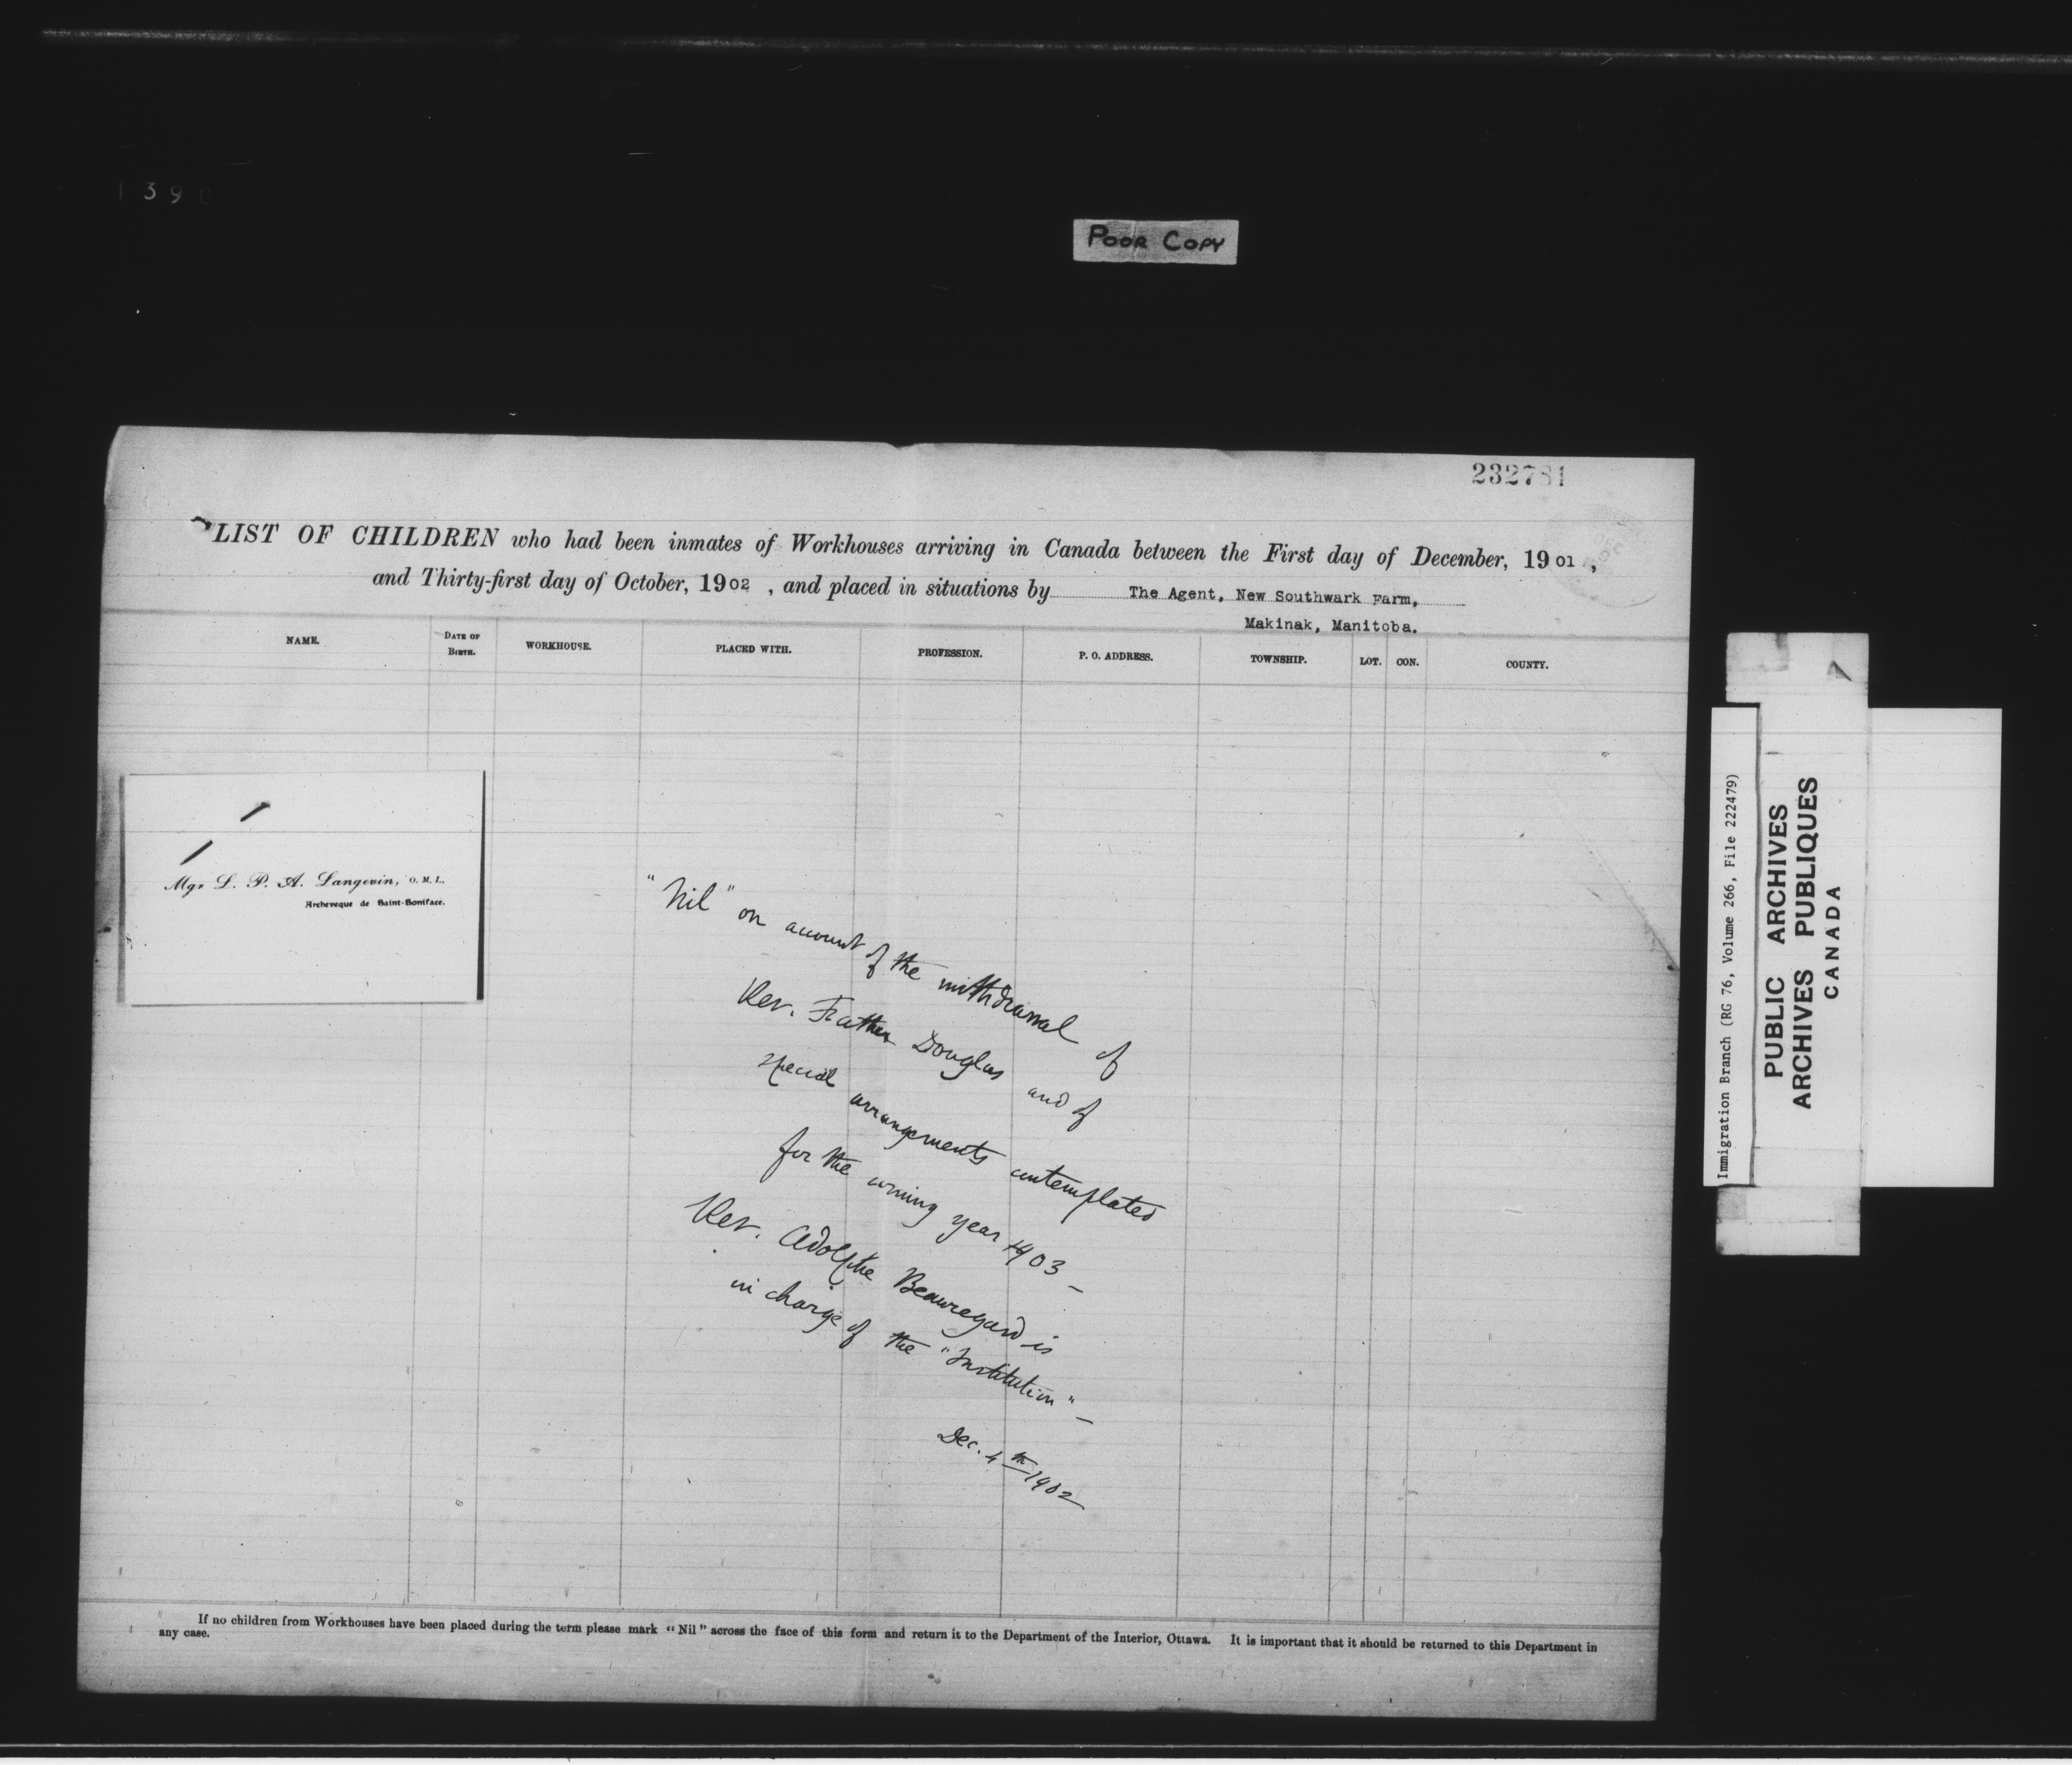 1390
POOR COPY
232781
LIST OF CHILDREN who had been inmates of Workhouses arriving in Canada between the First day of December, 1901,
and Thirty-first day of October, 1902, and placed in situations by The Agent, New Southwark Farm,
Makinak, Manitoba.
NAME. DATE OF BIRTH. WORKHOUSE. PLACED WITH. PROFESSION. P. O. ADDRESS. TOWNSHIP. LOT. CON. COUNTY.
Mgr L. P. A. Langevin, O. M. I.,
Archeveque de Saint-Boniface.
"Nil" on account of the withdrawal of
Rev. Father Douglas and of
special arrangements contemplated
for the coming year 1903 —
Rev. Adolphe Beauregard is
in charge of the "Institution" —
Dec. 4th 1902
If no children from Workhouses have been placed during the term please mark "Nil" across the face of this form and return it to the Department of the Interior, Ottawa. It is important that it should be returned to this Department in
any case.
Immigration Branch (RG 76, Volume 266, File 222479)
PUBLIC ARCHIVES
ARCHIVES PUBLIQUES
CANADA